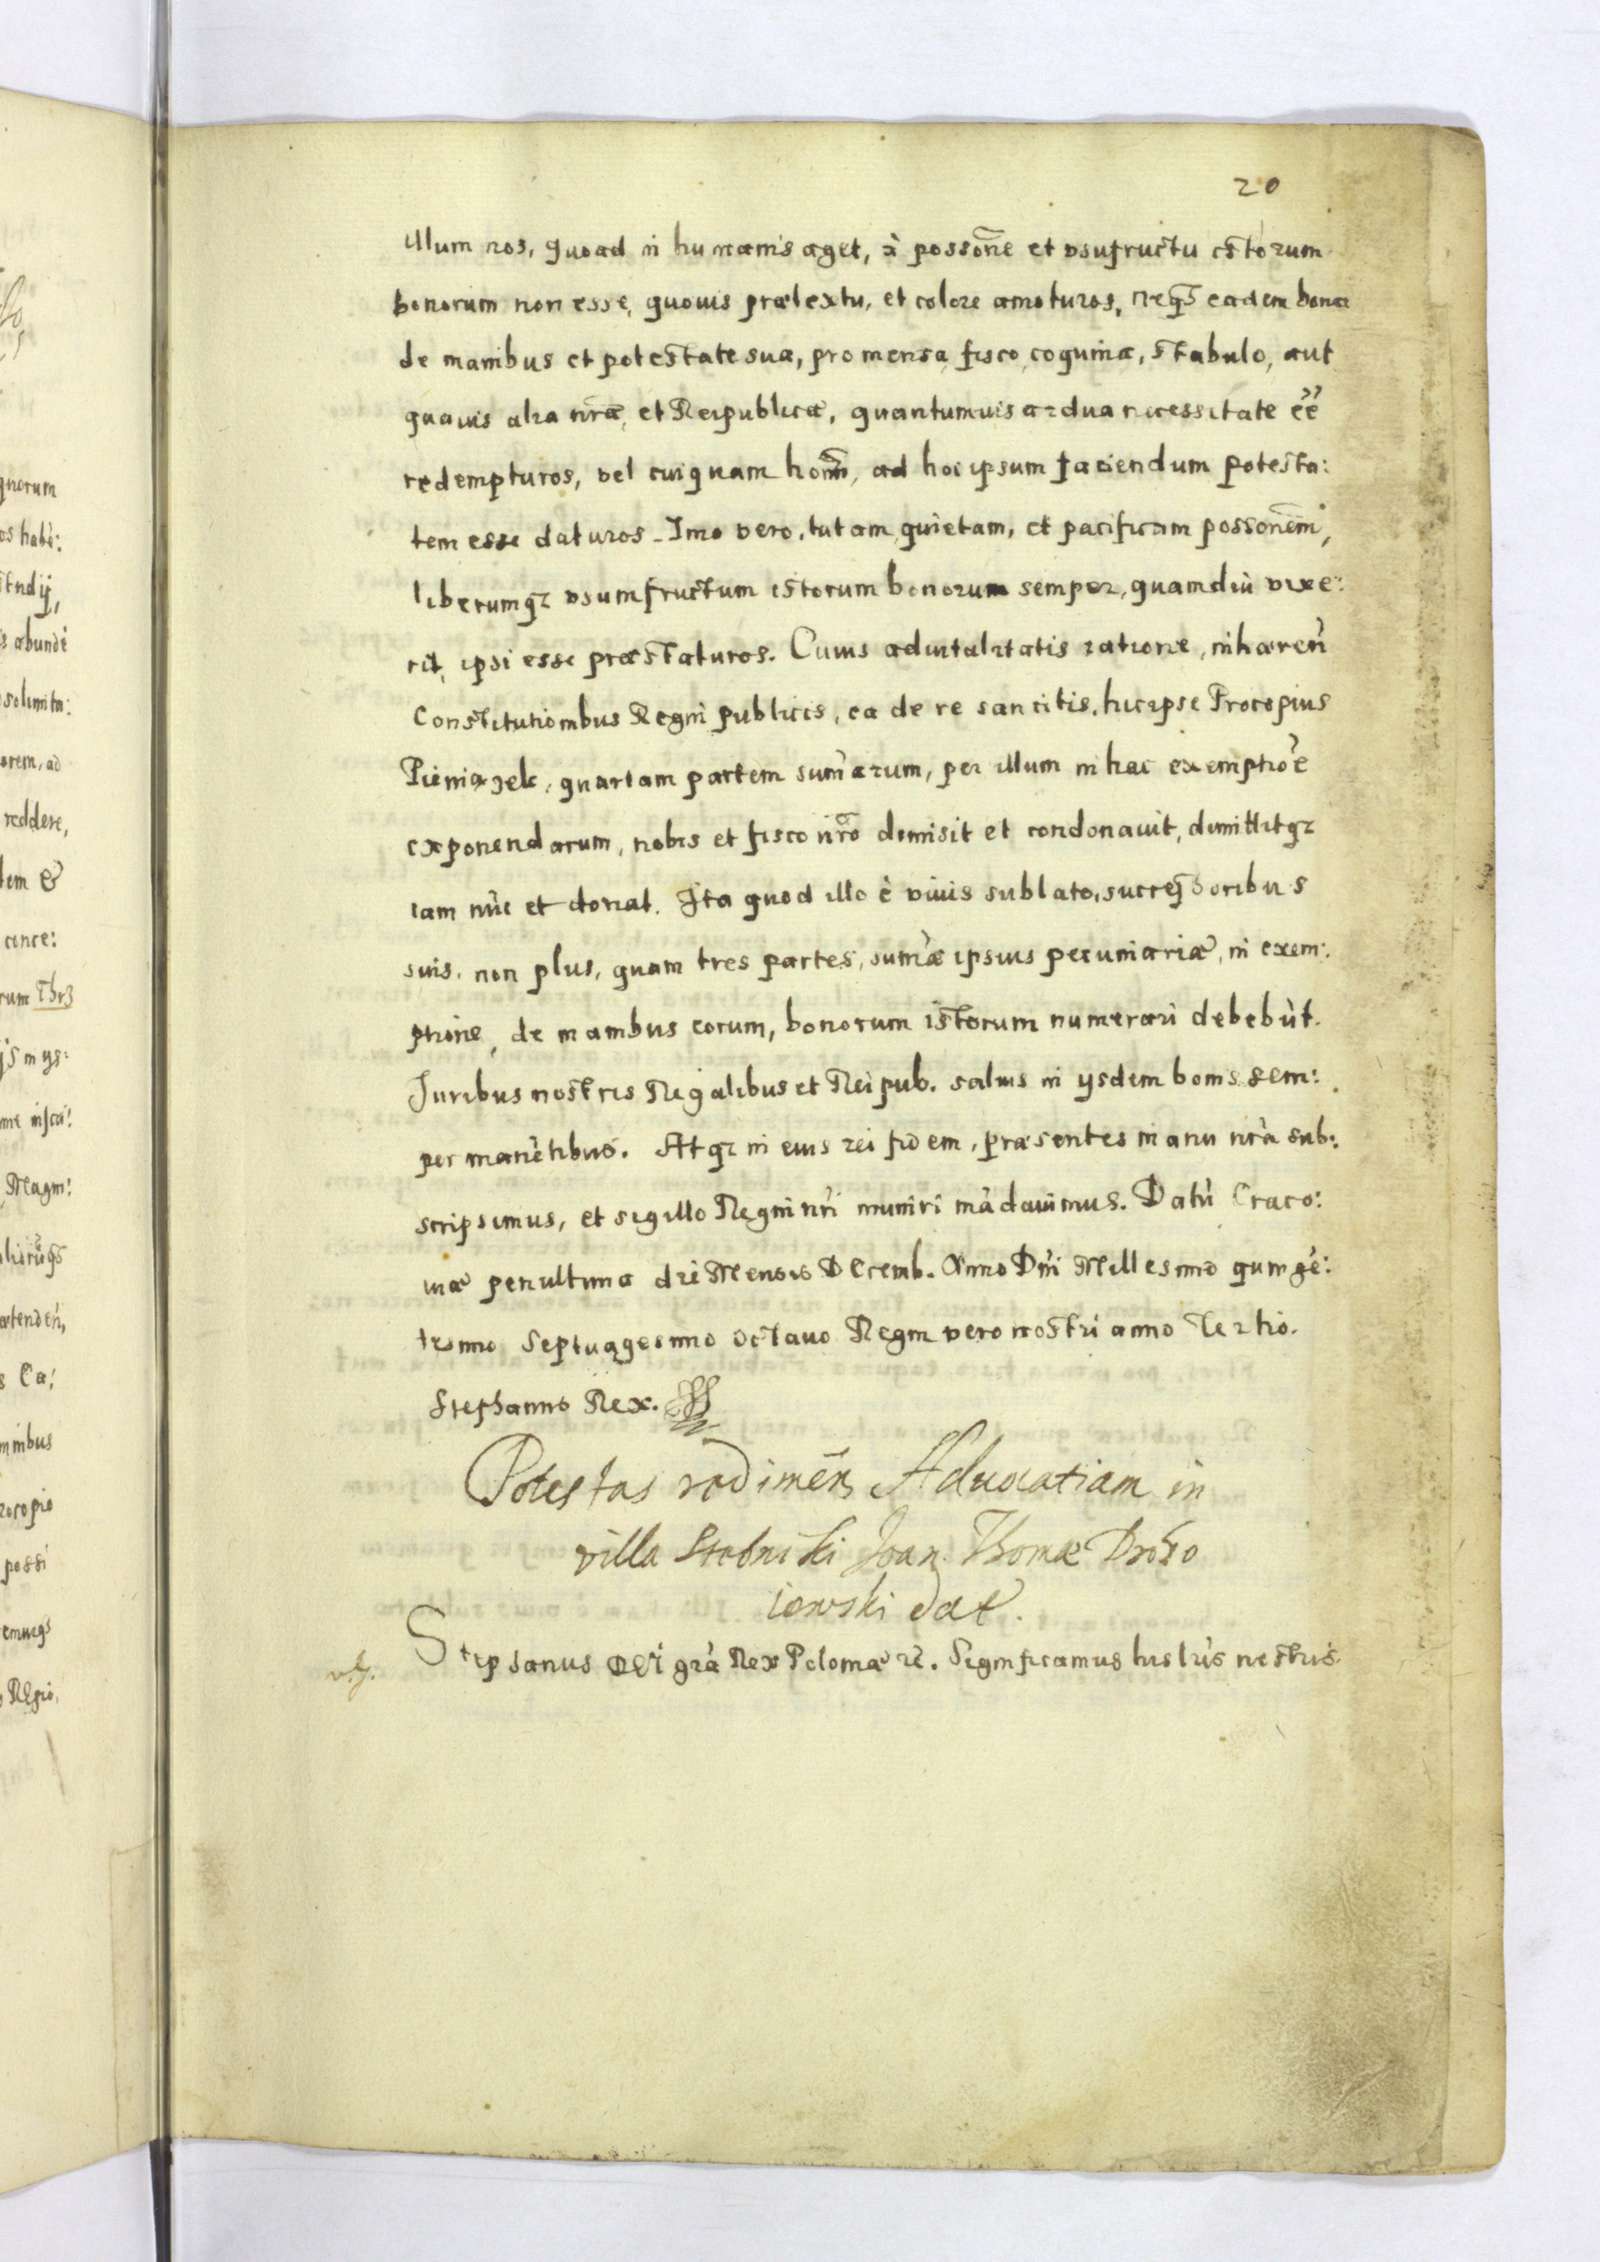 20
illum nos, quoad in humanis aget, à possōne et vsufructu istorum
bonorum non esse, quouis prætextu, et colore amoturos, neqȝ eadem bona
de manibus et potestate sua, pro mensa, fisco, coquina, stabulo, aut
quauis alia nrā, et Reipublicæ, quantumuis ardua necessitate ēē
redempturos, vel cuiquam hoīm, ad hoc ipsum faciendum potesta:
tem esse daturos. Imo vero, tutam, quietam, et pacificam possonēm,
liberumqȝ vsumfructum istorum bonorum semper, quamdiù vixe:
rit, ipsi esse præstaturos. Cuius aduitalitatis ratione, inhæren̄
Constitutionibus Regni publicis, ea de re sancitis, hic ipse Procopius
Pieniązek, quartam partem sum̄arum, per illum in hac exemptiōe
exponendarum, nobis et fisco nr̄o dimisit et condonauit, dimittitqȝ
iam nūc et donat. Ita quod illo è viuis sublato, successoribus
suis, non plus, quam tres partes, sum̄æ ipsius pecuniariæ, in exem:
ptione, de manibus eorum, bonorum istorum numerari debebūt.
Juribus nostris Regalibus et Reipub. saluis in ysdem bonis sem:
per manētibus. Atqȝ in eius rei fidem, præsentes manu nr̄a sub:
scripsimus, et sigillo Regni nr̄i muniri mādauimus. Datū Craco:
uiæ penultima die Mensis Decemb. Anno Dn̄i Millesimo quingē:
tesimo Septuagesimo octauo Regni vero nostri anno Tertio.
Stephanus Rex.
Potestas redimēn Aduocatiam in
villa Stobniki Joan. Thomæ Droho
iowski dat.
Stephanus DEI gr̄a Rex Poloniæ rē. Significamus his lr̄is nostris